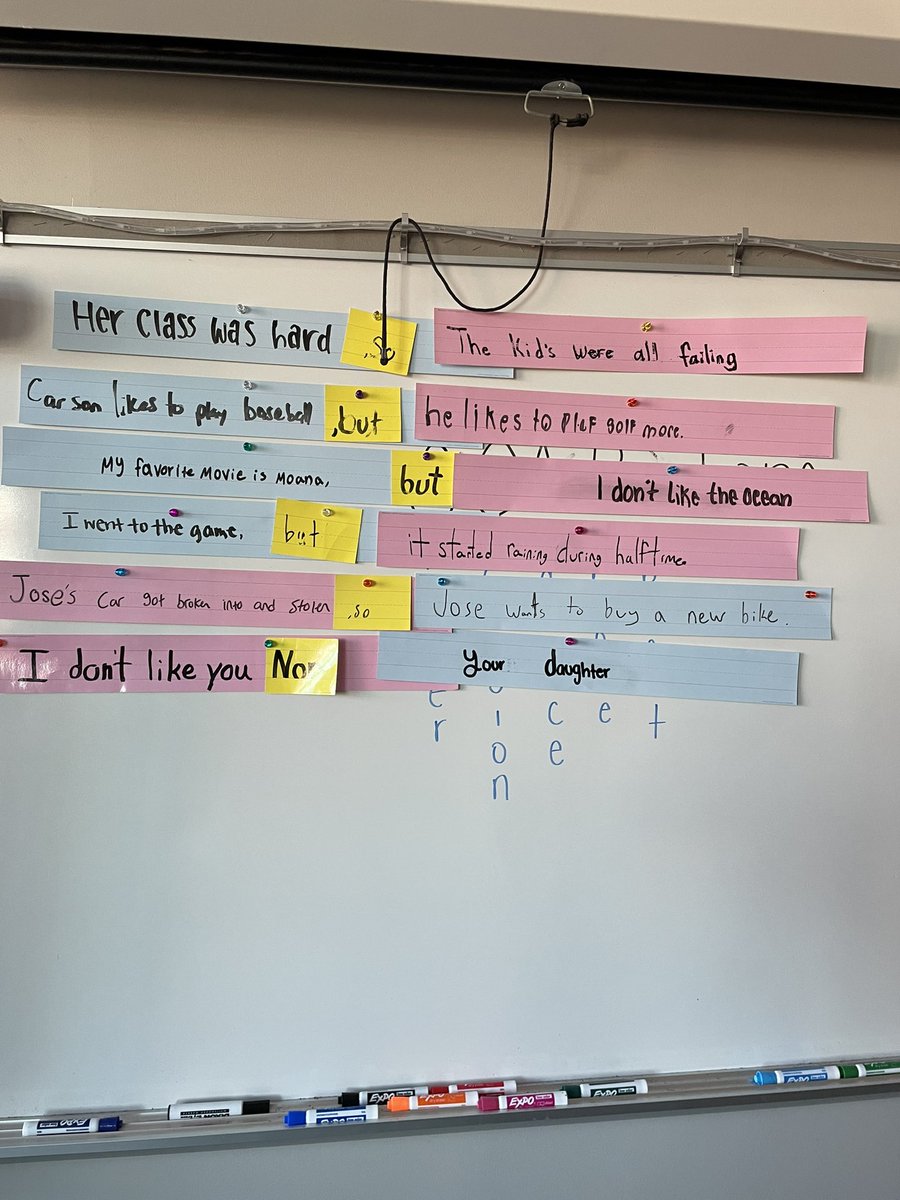 Her class was hard ,So The Kid's were all failing
Carson likes to play baseball ,but he likes to PLAY GOLF more.
My favorite Movie is Moana, but I don't like the Ocean
I went to the game, but it started raining during halftime.
Jose's Car got broken into and stolen ,so Jose wants to buy a new bike.
I don't like you Nor Your daughter
r i c e t
o e
n
EXPO
EXPO
EXPO
EXPO
EXPO
EXPO